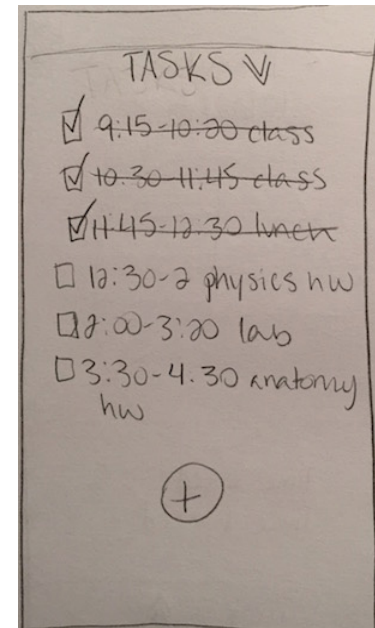 TASKS
9:15-10:20 class
10:30-11:45 class
11:45-12:30 lunch
12:30-2 physics hw
2:00-3:20 lab
3:30-4:30 anatomy
hw
+